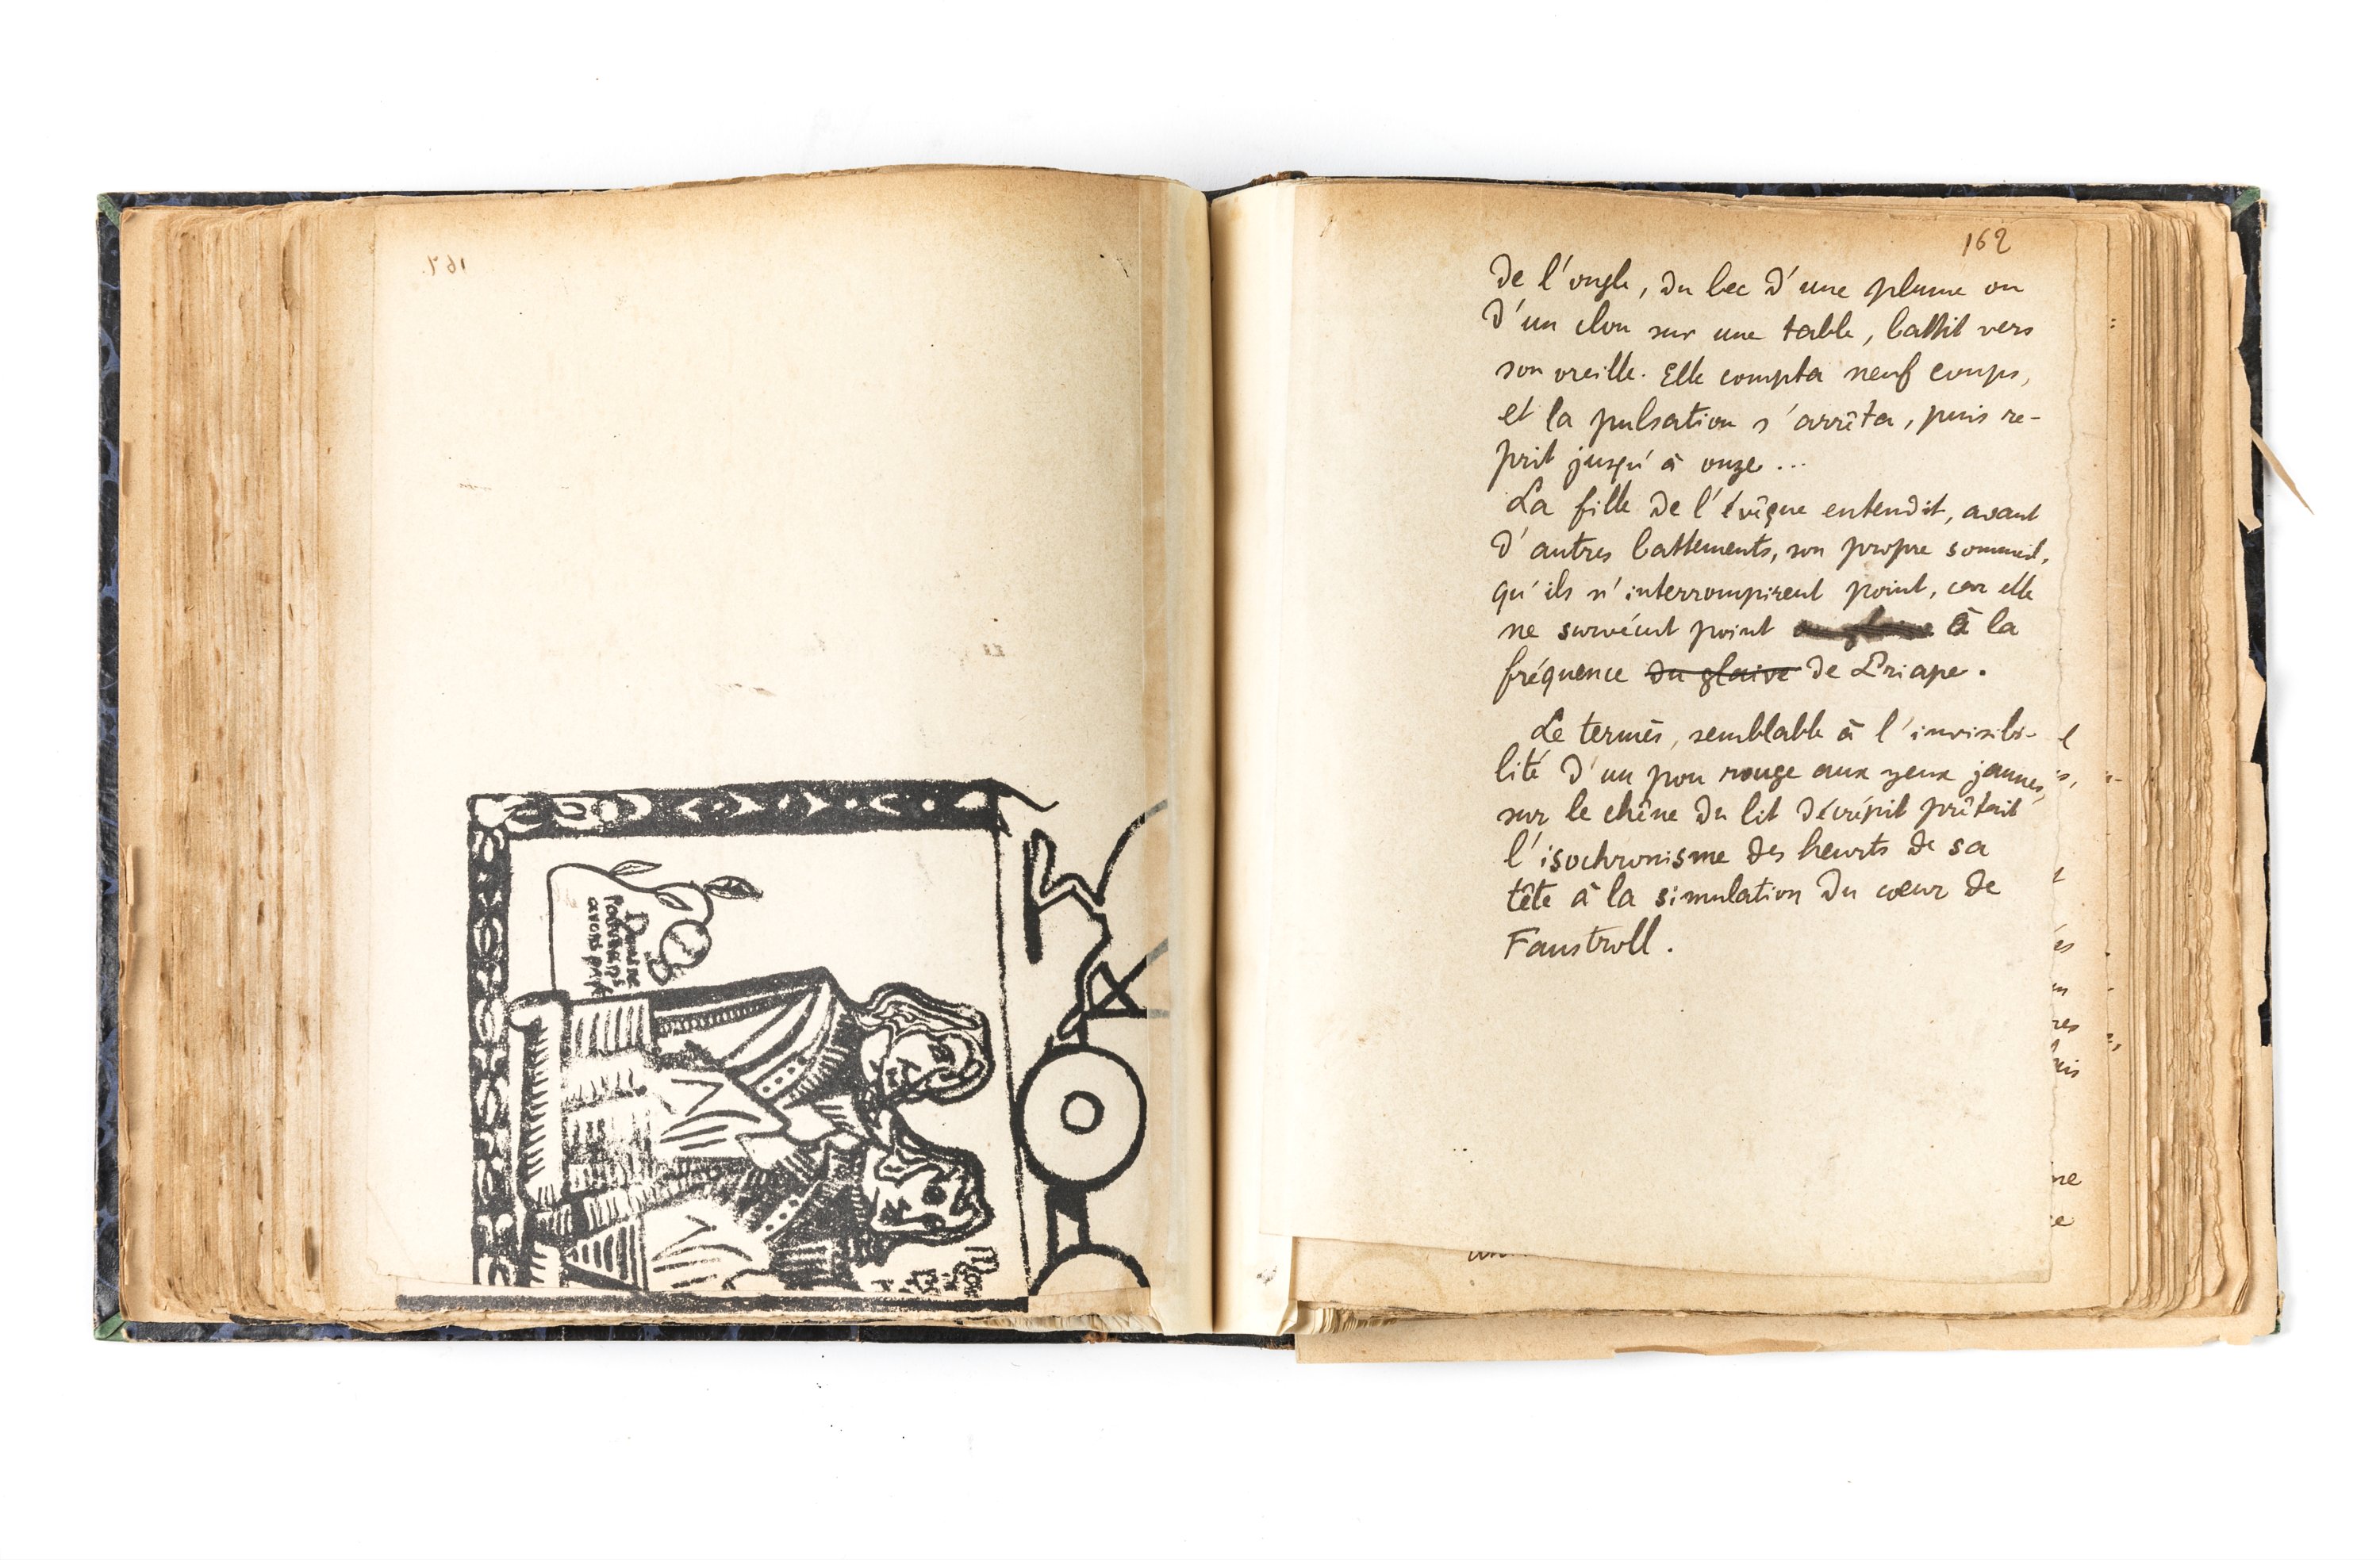 167.
162
de l'ongle, du bec d'une plume ou
d'un clou sur une table, battit vers
son oreille. Elle compta neuf coups,
et la pulsation s'arrêta, puis re-
prit jusqu'à onze ...
La fille de l'évêque entendit, avant
d'autres battements, son propre sommeil,
qu'ils n'interrompirent point, car elle
ne survécut point à la
fréquence du glaive de Priape.
Le termès, semblable à l'invisibi-
lité d'un pou rouge aux yeux jaunes,
sur le chêne du lit décrépit prêtait
l'isochronisme des heurts de sa
tête à la simulation du cœur de
Faustroll.